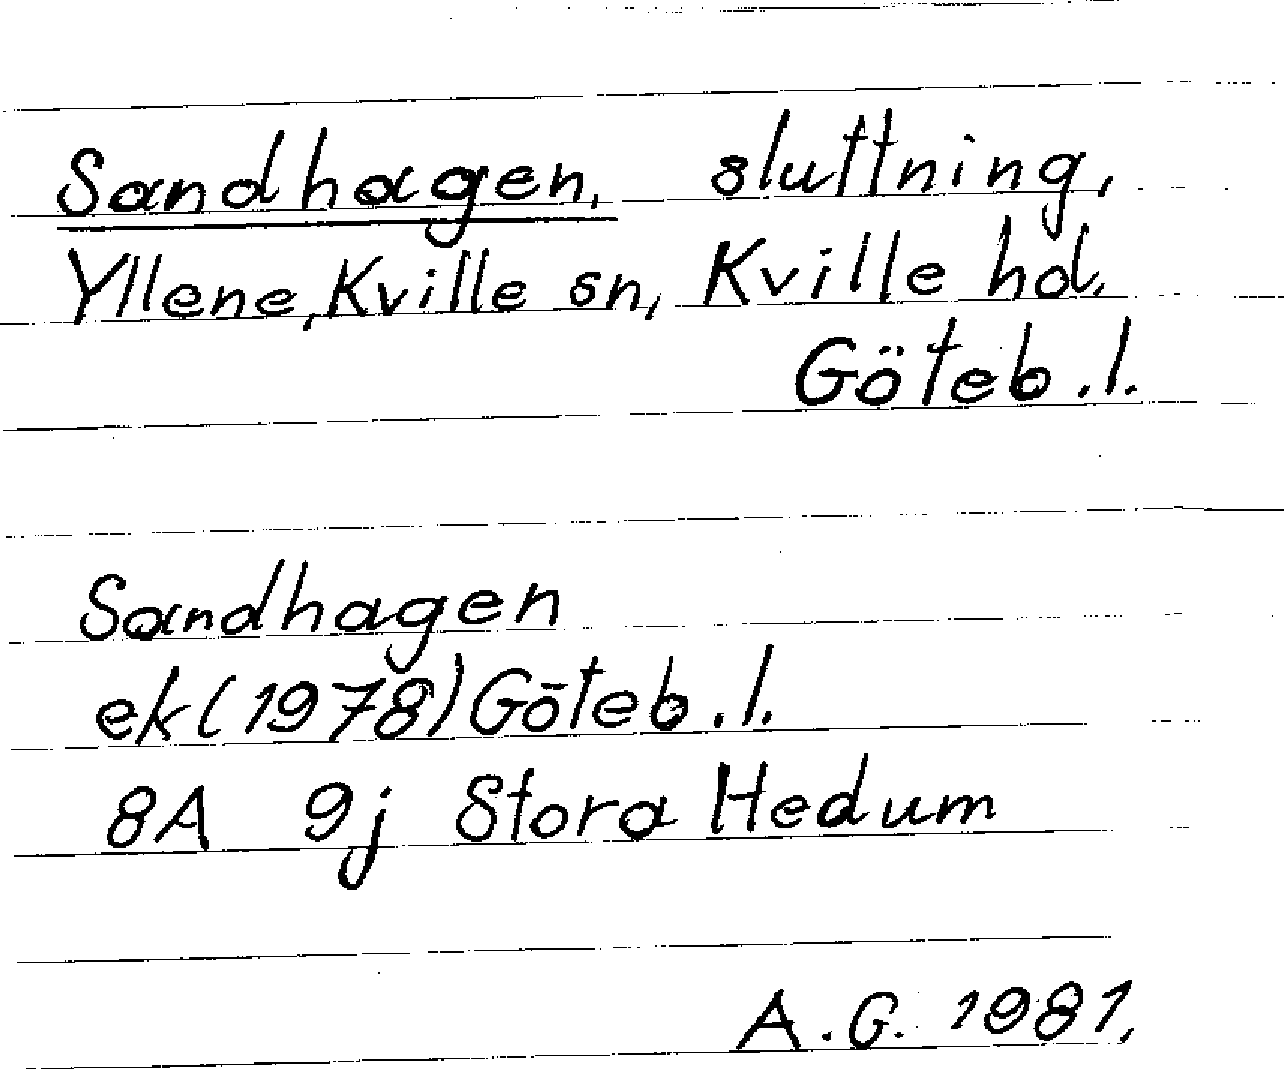 Sandhagen, sluttning,
Yllene, Kville sn, Kville hd,
Göteb. l.
Sandhagen
ek (1978) Göteb. l.
8A 9j Stora Hedum
A. G. 1981,